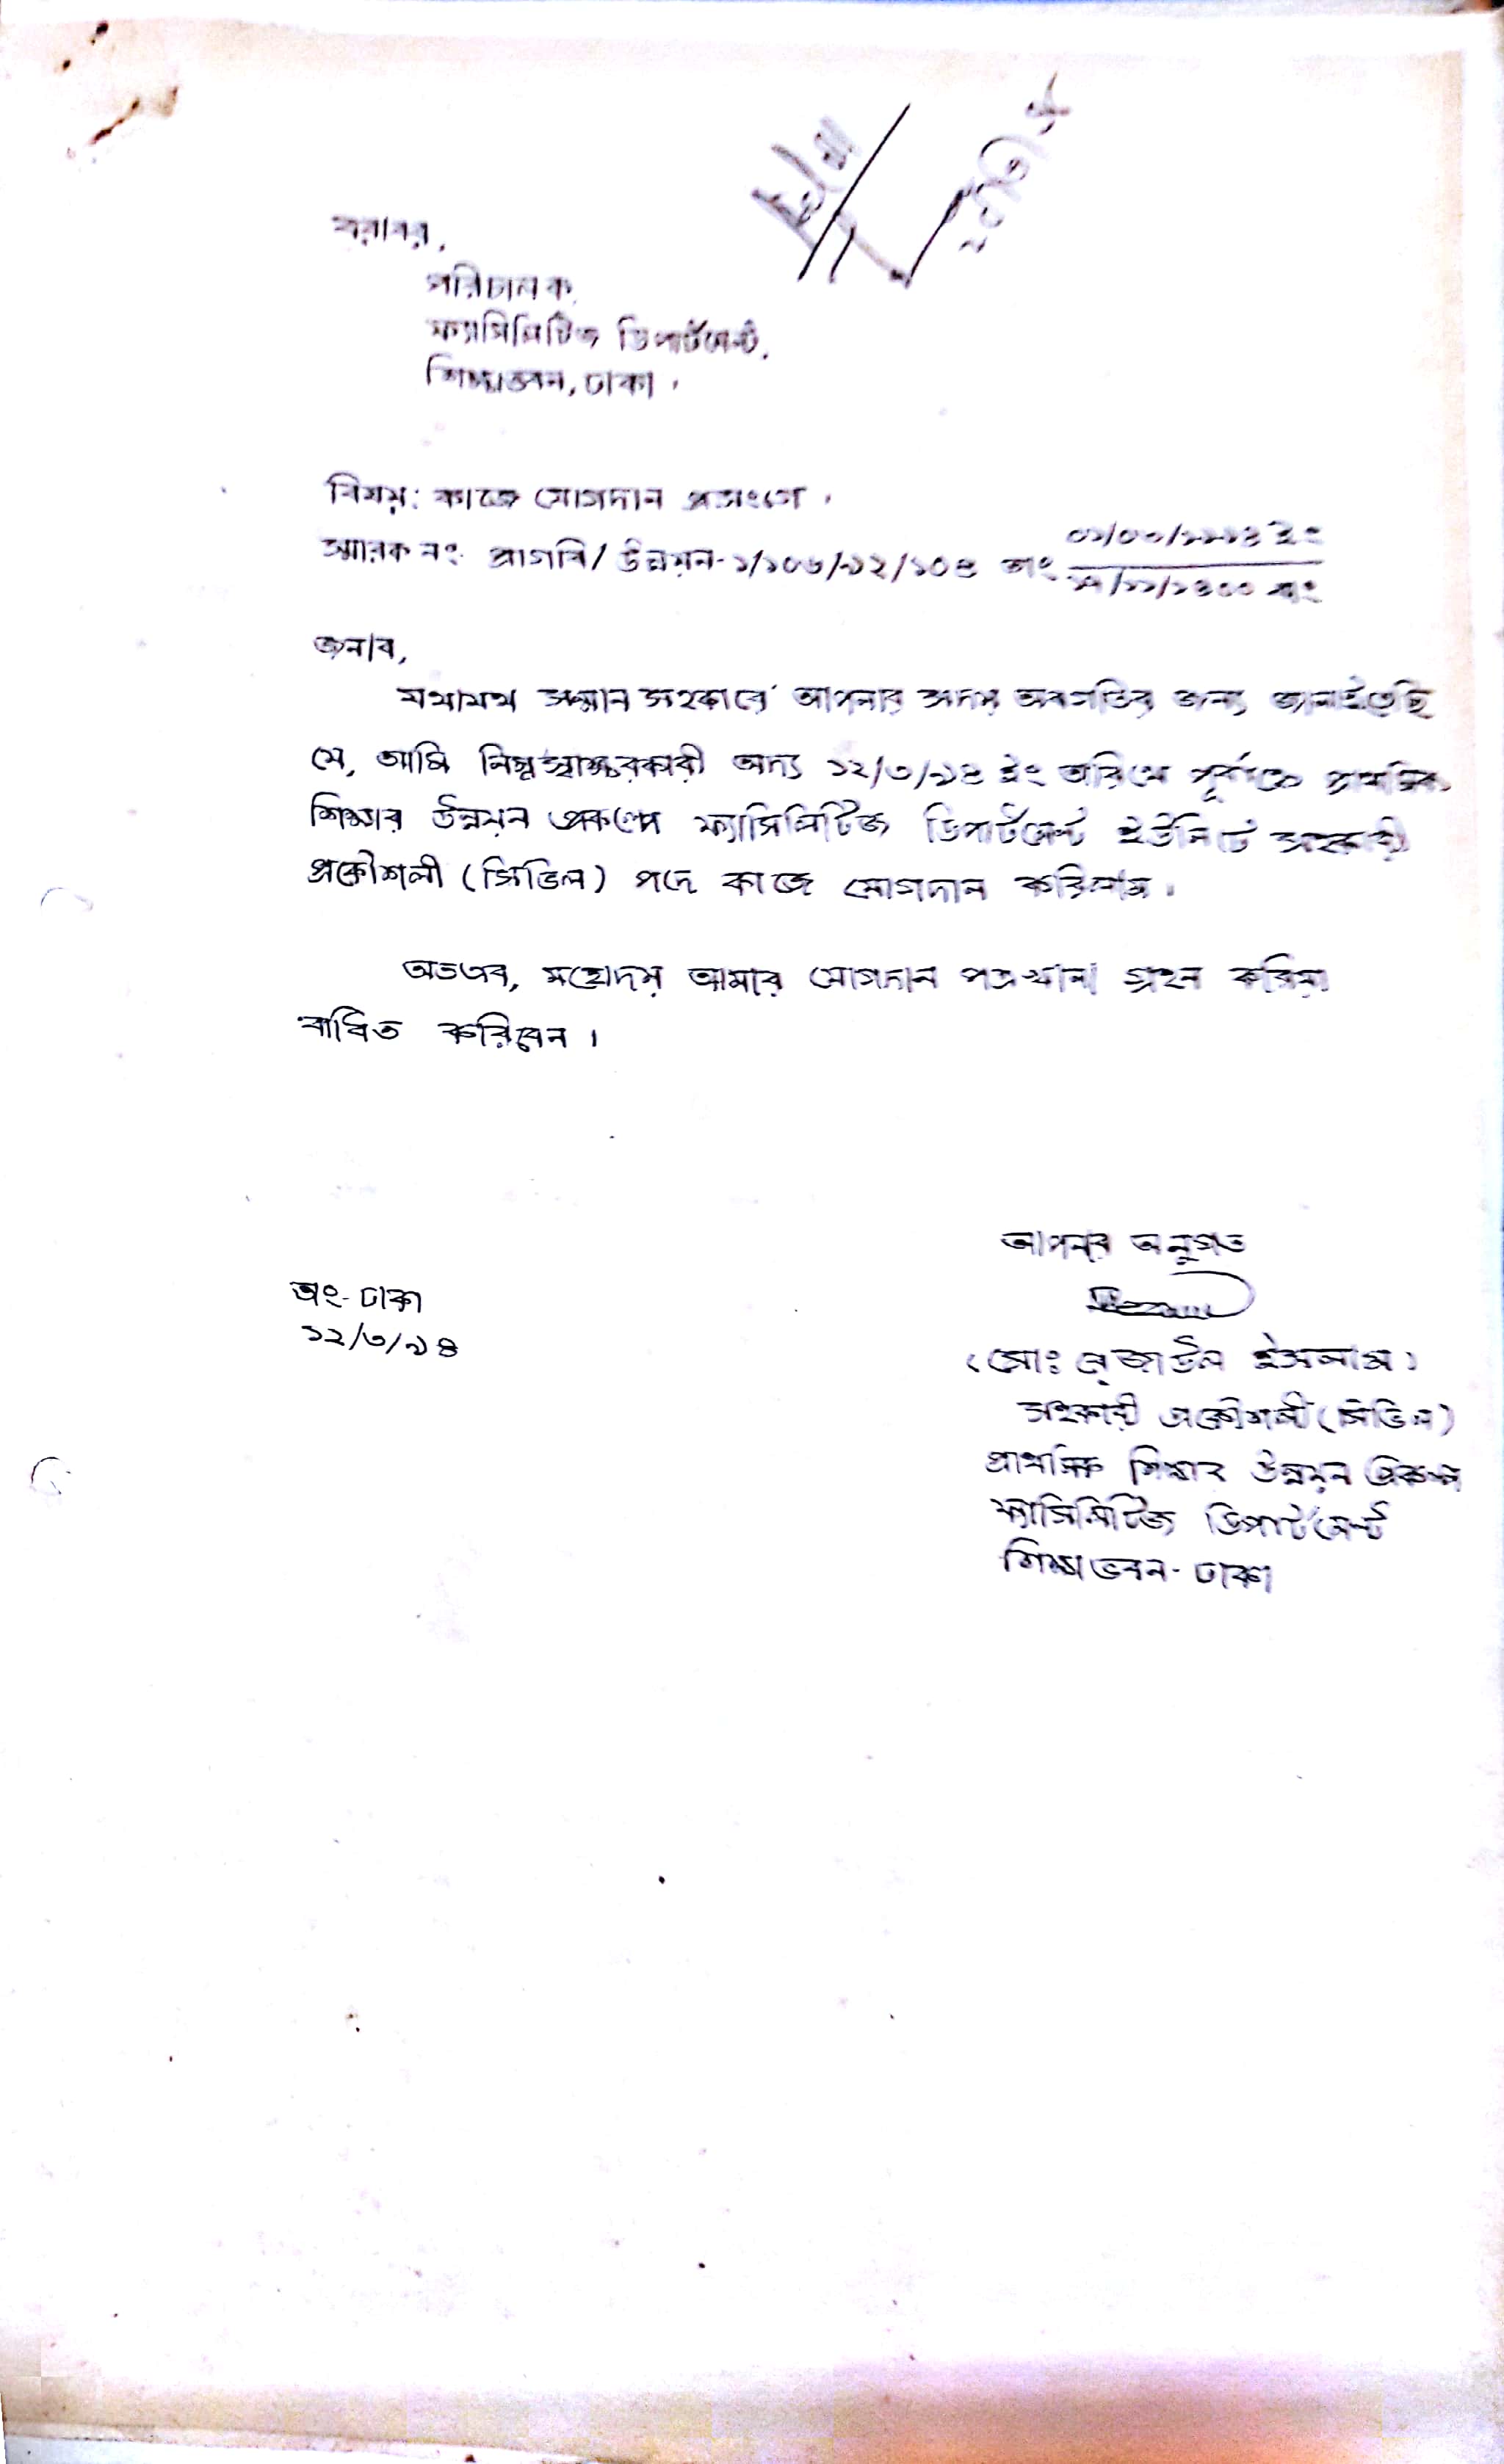 বরাবর,
পরিচালক,
ফ্যাসিলিটিজ ডিপার্টমেন্ট,
শিক্ষাভবন, ঢাকা।
বিষয়: কাজে যোগদান প্রসংগে।
স্মারক নং- প্রাগবি/ উন্নয়ন-১/১০৬/৯২/১০৪ তাং
০১/০৩/১৯৯৪ ইং
১৭/১১/১৪০০ বাং
জনাব,
যথাযথ সম্মান সহকারে আপনার সদয় অবগতির জন্য জানাইতেছি
যে, আমি নিম্নস্বাক্ষরকারী অদ্য ১২/৩/৯৪ ইং তারিখে পূর্বাহ্নে প্রাথমিক
শিক্ষার উন্নয়ন প্রকল্পে ফ্যাসিলিটিজ ডিপার্টমেন্ট ইউনিটে সহকারী
প্রকৌশলী (সিভিল) পদে কাজে যোগদান করিলাম।
অতএব, মহোদয় আমার যোগদান পত্রখানা গ্রহন করিয়া
বাধিত করিবেন।
আপনার অনুগত
তাং- ঢাকা
১২/৩/৯৪
(মোঃ রেজাউল ইসলাম)
সহকারী প্রকৌশলী (সিভিল)
প্রাথমিক শিক্ষার উন্নয়ন প্রকল্প
ফ্যাসিলিটিজ ডিপার্টমেন্ট
শিক্ষা ভবন- ঢাকা